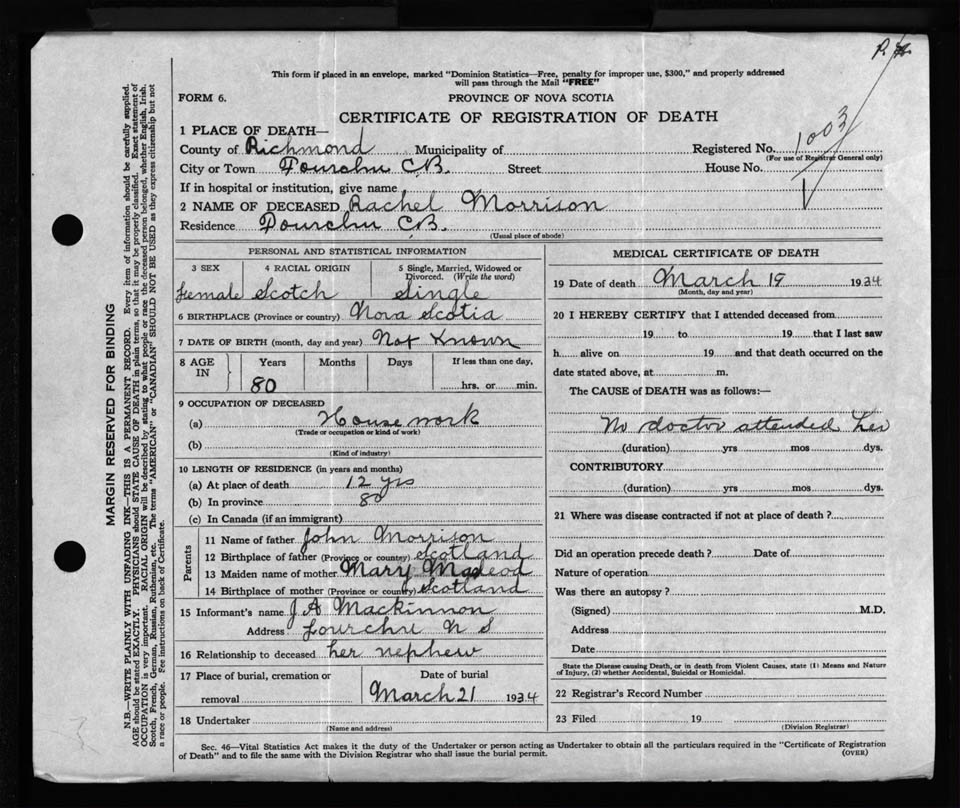 P.
This form if placed in an envelope, marked "Dominion Statistics—Free, penalty for improper use, $300," and properly addressed
will pass through the Mail "FREE"
FORM 6.
PROVINCE OF NOVA SCOTIA
CERTIFICATE OF REGISTRATION OF DEATH
1 PLACE OF DEATH—
County of Richmond Municipality of Registered No. 1003
(For use of Registrar General only)
City or Town Fourchu C.B. Street House No.
If in hospital or institution, give name
2 NAME OF DECEASED Rachel Morrison
Residence Fourchu C.B.
(Usual place of abode)
PERSONAL AND STATISTICAL INFORMATION
3 SEX 4 RACIAL ORIGIN 5 Single, Married, Widowed or
Divorced. (Write the word)
female Scotch Single
6 BIRTHPLACE (Province or country) Nova Scotia
7 DATE OF BIRTH (month, day and year) Not Known
8 AGE IN Years Months Days If less than one day,
80 hrs. or min.
9 OCCUPATION OF DECEASED
(a) House work
(Trade or occupation or kind of work)
(b)
(Kind of industry)
10 LENGTH OF RESIDENCE (in years and months)
(a) At place of death 12 yrs
(b) In province 80
(c) In Canada (if an immigrant)
Parents
11 Name of father John Morrison
12 Birthplace of father (Province or country) Scotland
13 Maiden name of mother Mary McLeod
14 Birthplace of mother (Province or country) Scotland
15 Informant's name J. A Mackinnon
Address Fourchu N S
16 Relationship to deceased her nephew
17 Place of burial, cremation or Date of burial
removal March 21 1934
18 Undertaker
(Name and address)
MEDICAL CERTIFICATE OF DEATH
19 Date of death March 19 1934
(Month, day and year)
20 I HEREBY CERTIFY that I attended deceased from
19 to 19 that I last saw
h alive on 19 and that death occurred on the
date stated above, at m.
The CAUSE of DEATH was as follows:—
No doctor attended her
(duration) yrs mos dys.
CONTRIBUTORY
(duration) yrs mos dys.
21 Where was disease contracted if not at place of death?
Did an operation precede death? Date of
Nature of operation
Was there an autopsy?
(Signed) M.D.
Address
Date
State the Disease causing Death, or in death from Violent Causes, state (1) Means and Nature
of Injury, (2) whether Accidental, Suicidal or Homicidal.
22 Registrar's Record Number
23 Filed 19
(Division Registrar)
Sec. 46—Vital Statistics Act makes it the duty of the Undertaker or person acting as Undertaker to obtain all the particulars required in the "Certificate of Registration
of Death" and to file the same with the Division Registrar who shall issue the burial permit. (OVER)
MARGIN RESERVED FOR BINDING
N.B.—WRITE PLAINLY WITH UNFADING INK—THIS IS A PERMANENT RECORD. Every item of information should be carefully supplied.
AGE should be stated EXACTLY. PHYSICIANS should STATE CAUSE OF DEATH in plain terms, so that it may be properly classified. Exact statement of
OCCUPATION is very important. RACIAL ORIGIN will be described by stating to what people or race the deceased person belonged, whether English, Irish,
Scotch, French, German, Russian, Ruthenian, etc. The terms "AMERICAN" or "CANADIAN" SHOULD NOT BE USED as they express citizenship but not
a race or people. See instructions on back of Certificate.